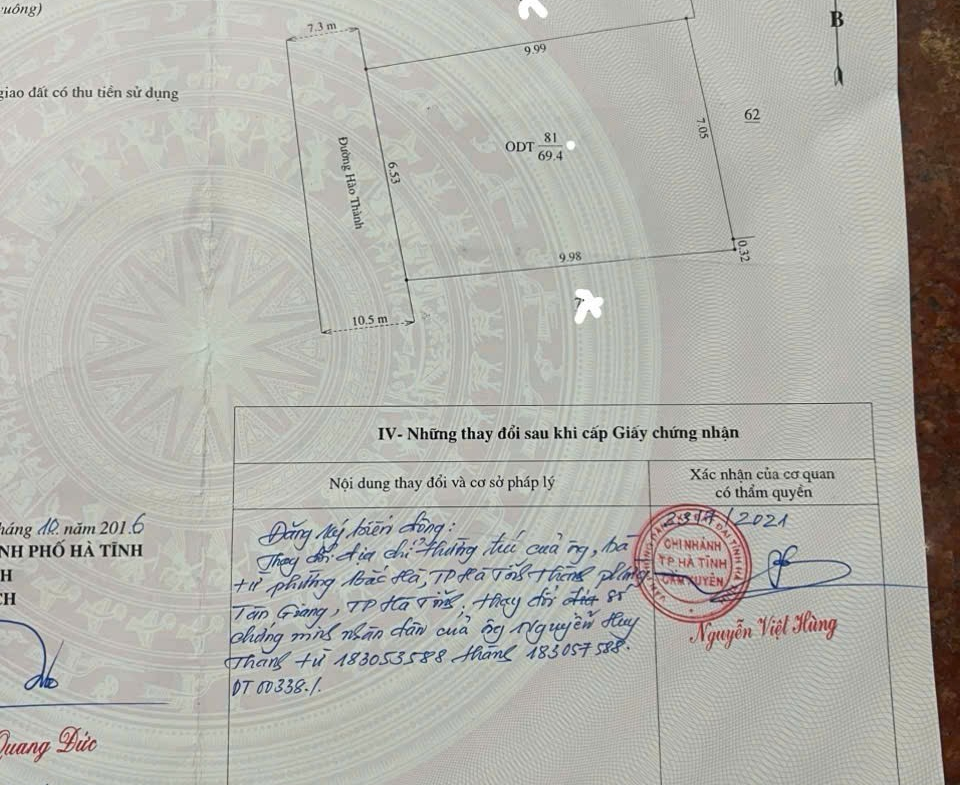 vuông)
giao đất có thu tiền sử dụng
7.3 m
9.99
B
ODT 81
69.4
7.05
62
Đường Hào Thành
6.53
0.32
9.98
10.5 m
IV- Những thay đổi sau khi cấp Giấy chứng nhận
Nội dung thay đổi và cơ sở pháp lý
Xác nhận của cơ quan
có thẩm quyền
háng 10 năm 2016
NH PHỐ HÀ TĨNH
H
CH
Quang Đức
Đăng ký biến động:
Thay đổi địa chỉ thường trú của ông, bà
từ phường Bắc Hà, TP Hà Tĩnh thành phường
Tân Giang, TP Hà Tĩnh, thay đổi số
chứng minh nhân dân của ông Nguyễn Huy
Thanh từ 183053588 thành 183057588.
ĐT 00338./.
/2021
CHI NHÁNH
TP HÀ TĨNH
CẨM XUYÊN
Nguyễn Việt Hùng